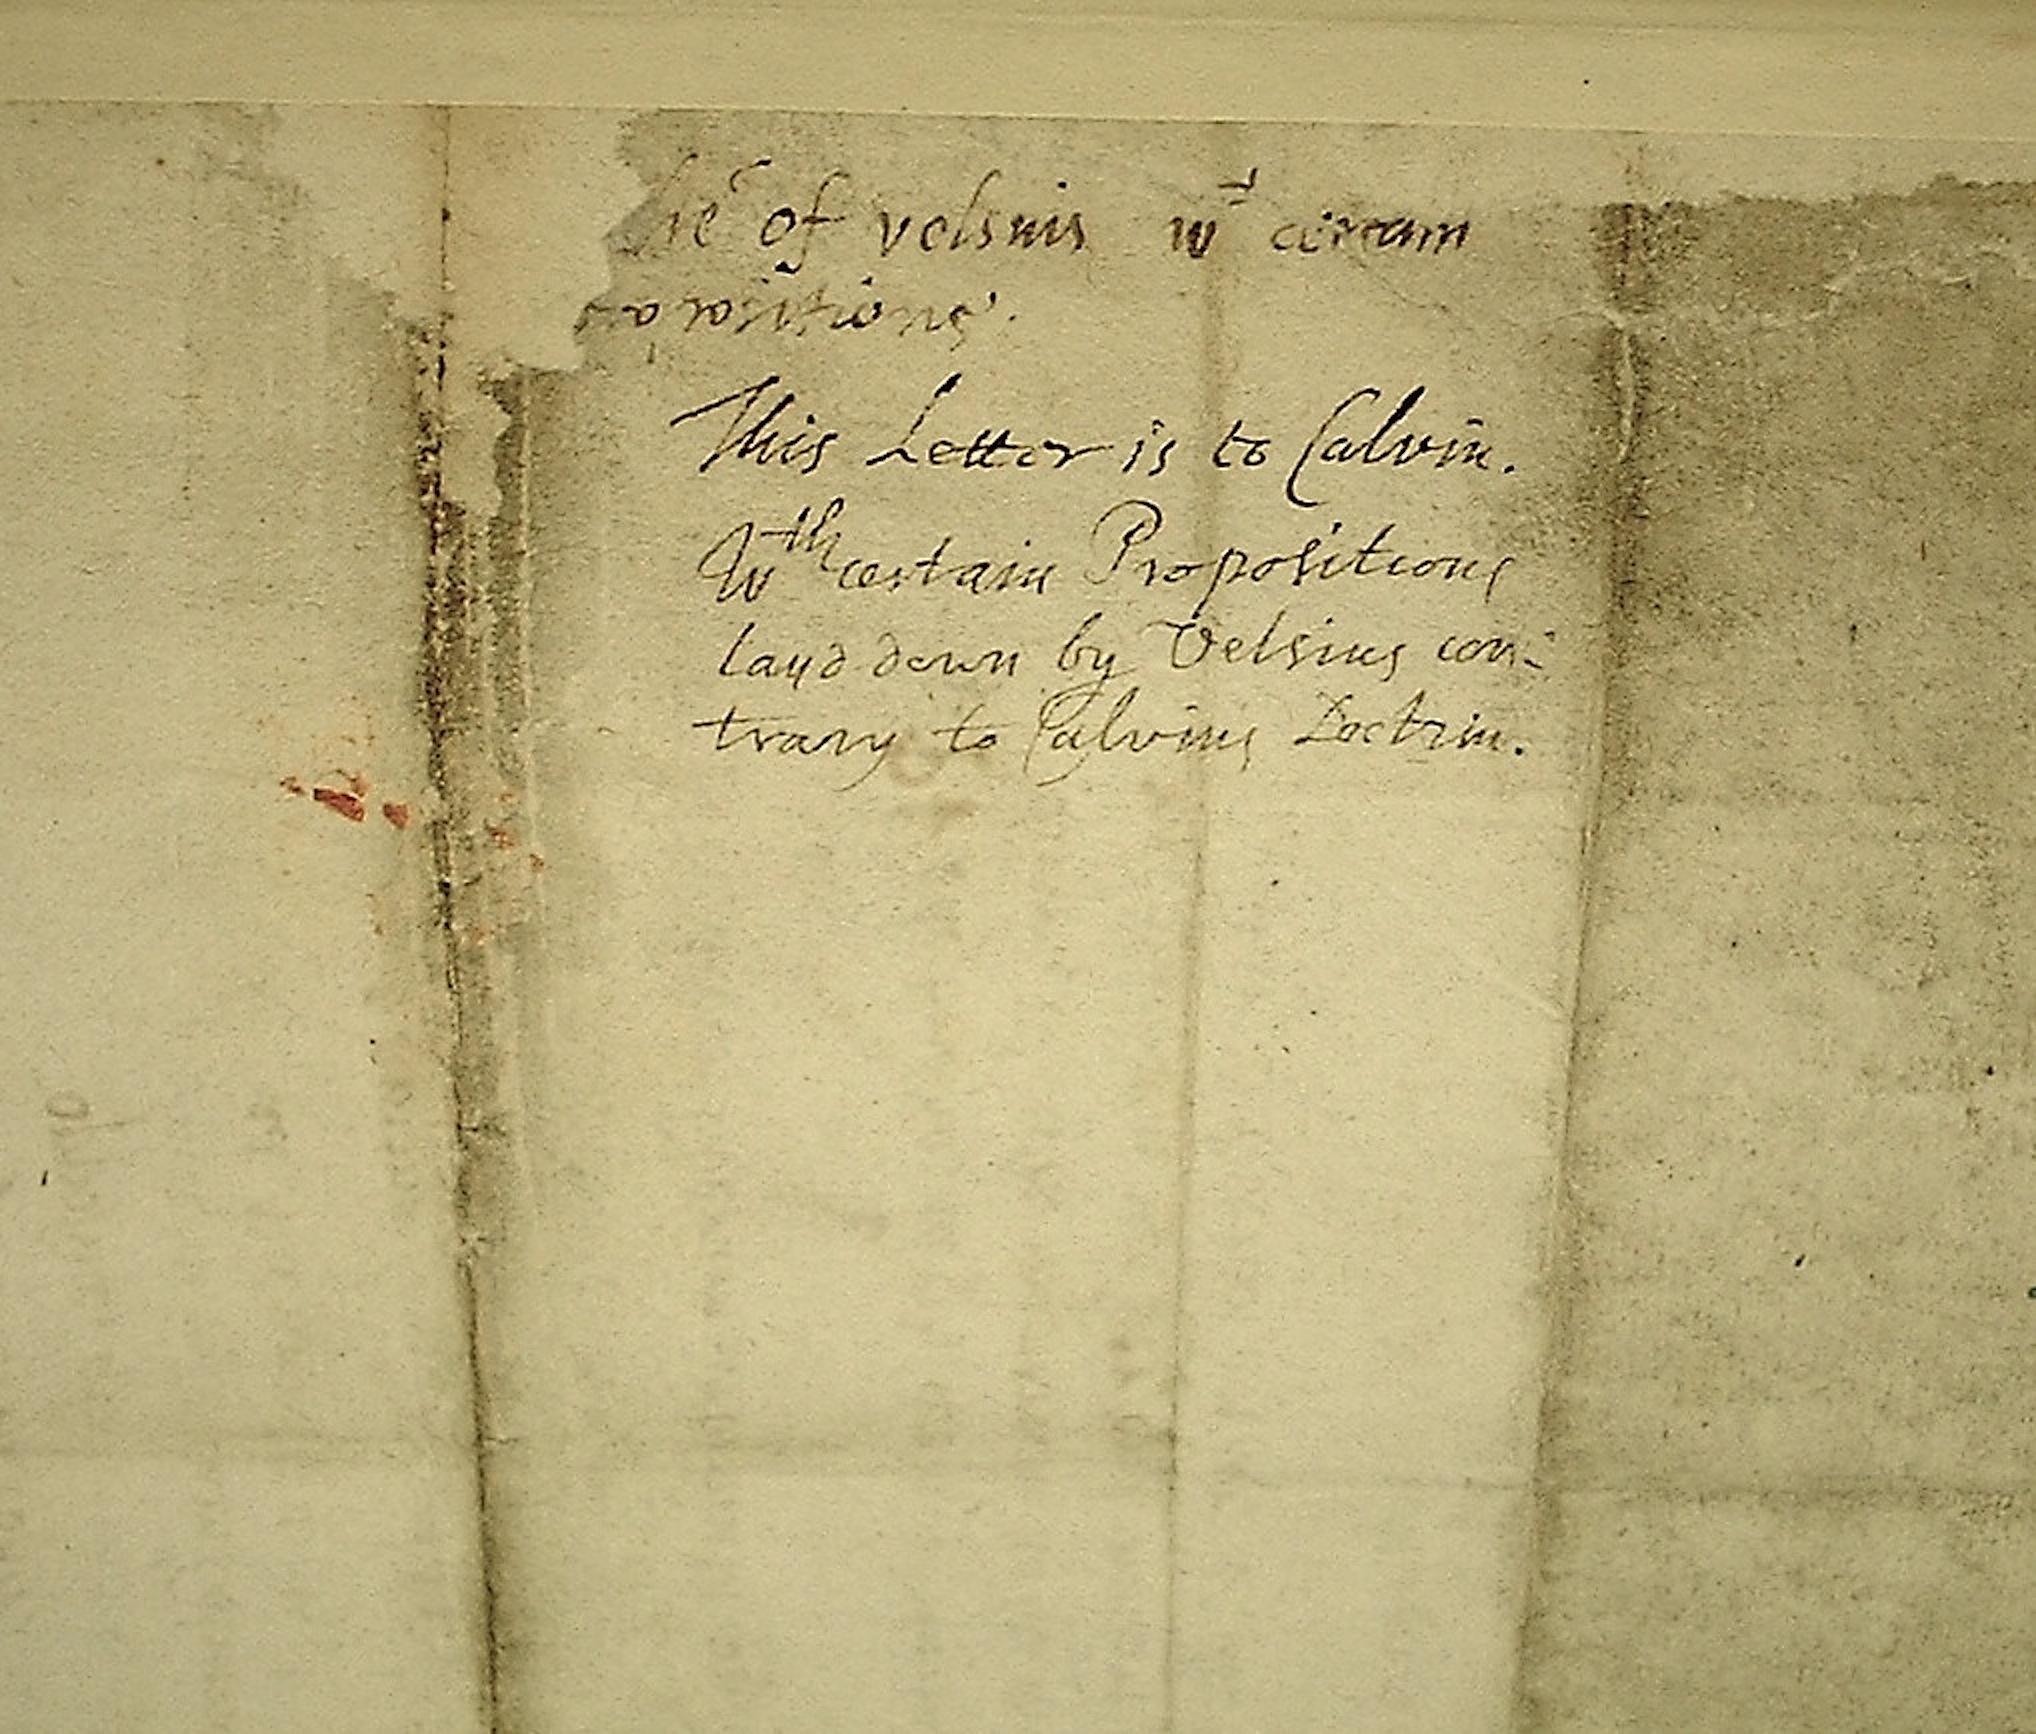 of velsius wt certain
propositions.
This Letter is to Calvin.
Wth certain Propositions
layd down by Velsius con:
trary to Calvins Doctrin.